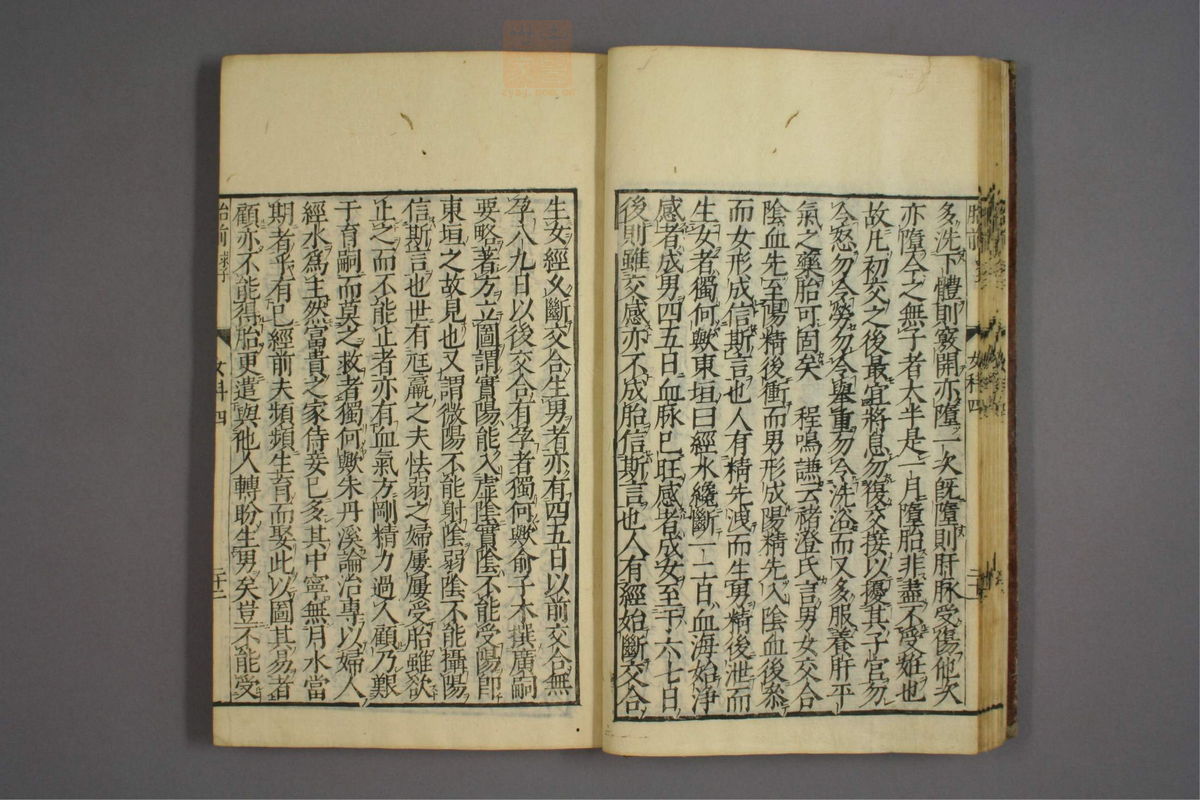 多洗下體則竅開亦墮一次既墮則肝脉受傷他次
亦墮今之無子者太半是一月墮胎非盡不受姙也
故凡初交之後最宜將息勿復交接以擾其子宮勿
令怒勿令勞勿令舉重勿令洗浴而又多服養肝平
氣之藥胎可固矣 程鳴謙云褚澄氏言男女交合
陰血先至陽精後衝而男形成陽精先入陰血後參
而女形成信斯言也人有精先洩而生男精後泄而
生女者獨何歟東垣曰經水纔斷一二日血海始淨
感者成男四五日血脉已旺感者成女至于六七日
後則雖交感亦不成胎信斯言也人有經始斷交合
生女經乆斷交合生男者亦有四五日以前交合無
孕八九日以後交合有孕者獨何歟俞子木撰廣嗣
要略著方立圖謂實陽能入虛陰實陰不能受陽即
東垣之故見也又謂微陽不能射陰弱陰不能攝陽
信斯言也世有尫羸之夫怯弱之婦屢屢受胎雖欲
止之而不能止者亦有血氣方剛精力過人顧乃艱
于育嗣而莫之救者獨何歟朱丹溪論治專以婦人
經水為主然富貴之家侍妾已多其中寧無月水當
期者乎有已經前夫頻頻生育而娶此以圖其易者
顧亦不能得胎更遣與他人轉盼生男矣豈不能受
胎前 求子 女科四 二十二